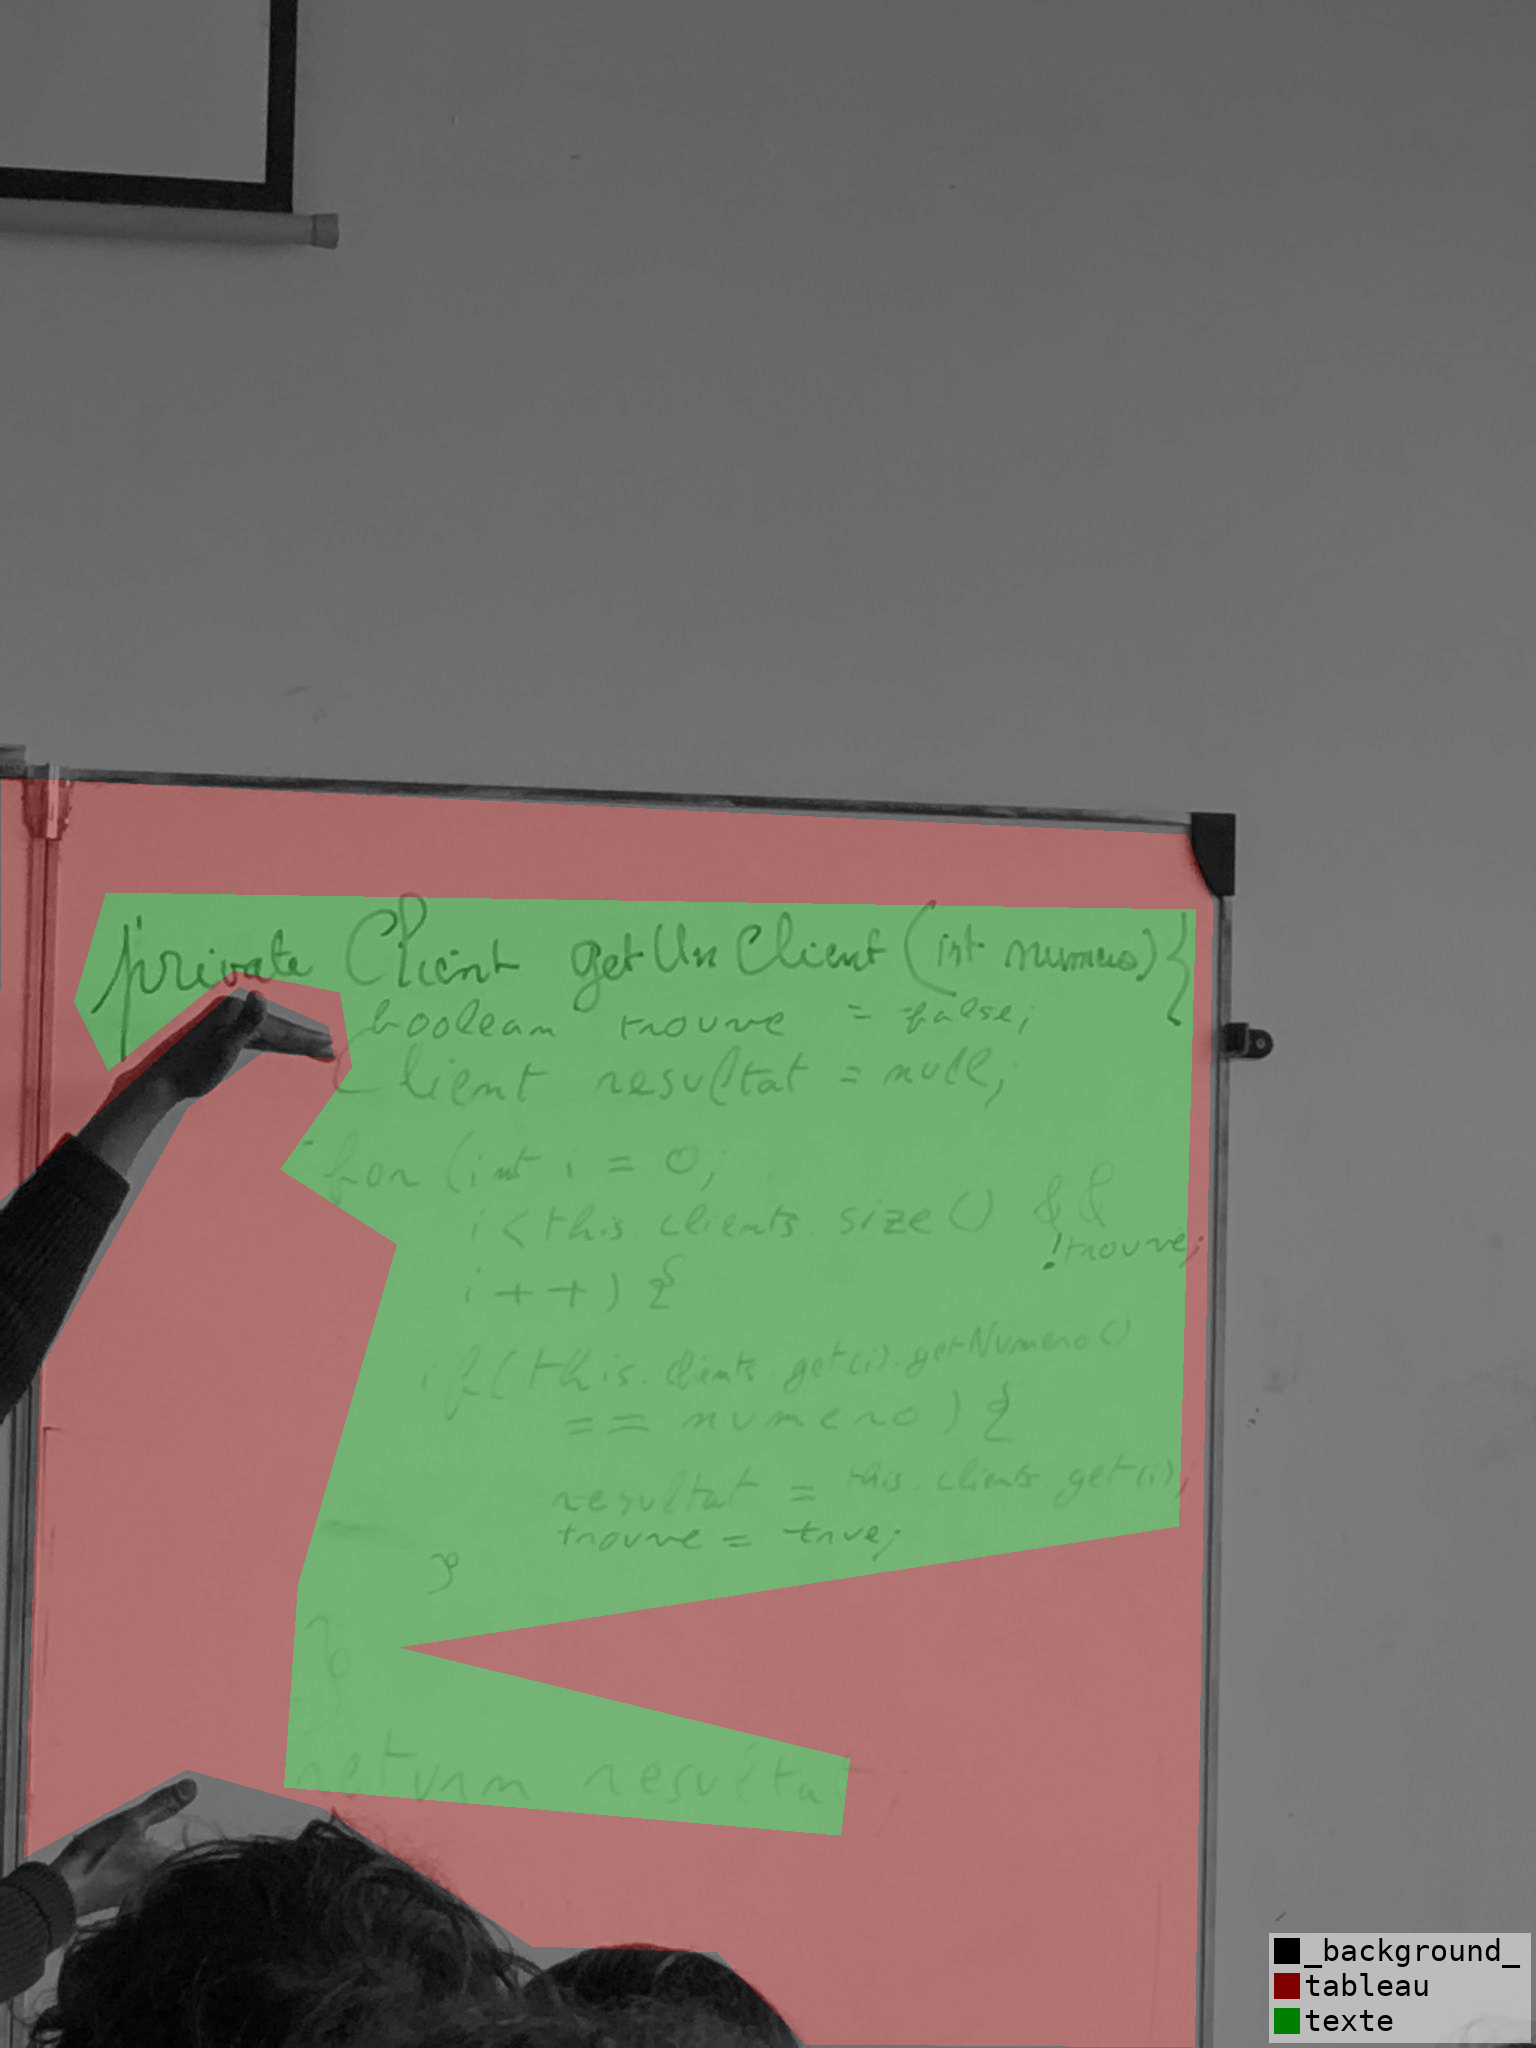 private Client getUnClient (int numero) {
boolean trouve = false;
Client resultat = null;
for (int i = 0;
i < this.clients.size() &&
!trouve;
i++) {
if (this.clients.get(i).getNumero()
== numero) {
resultat = this.clients.get(i);
trouve = true;
}
}
return resultat
_background_
tableau
texte